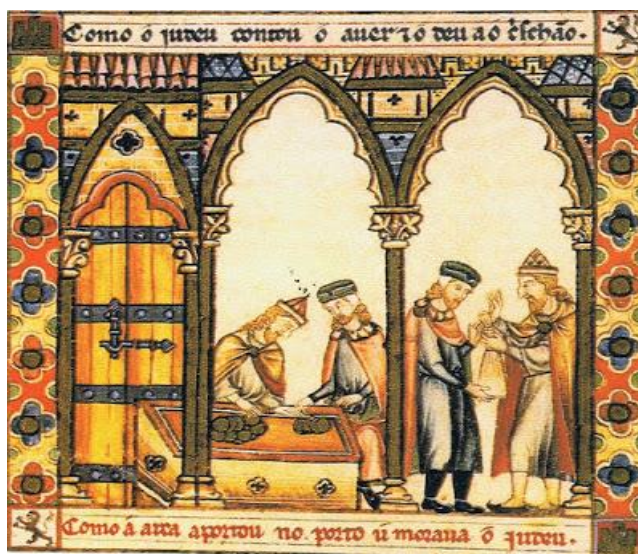 Como o iudeu contou o auer z o deu ao c̃schão.
Como á arca aportou no porto ũ moraua o iudeu.